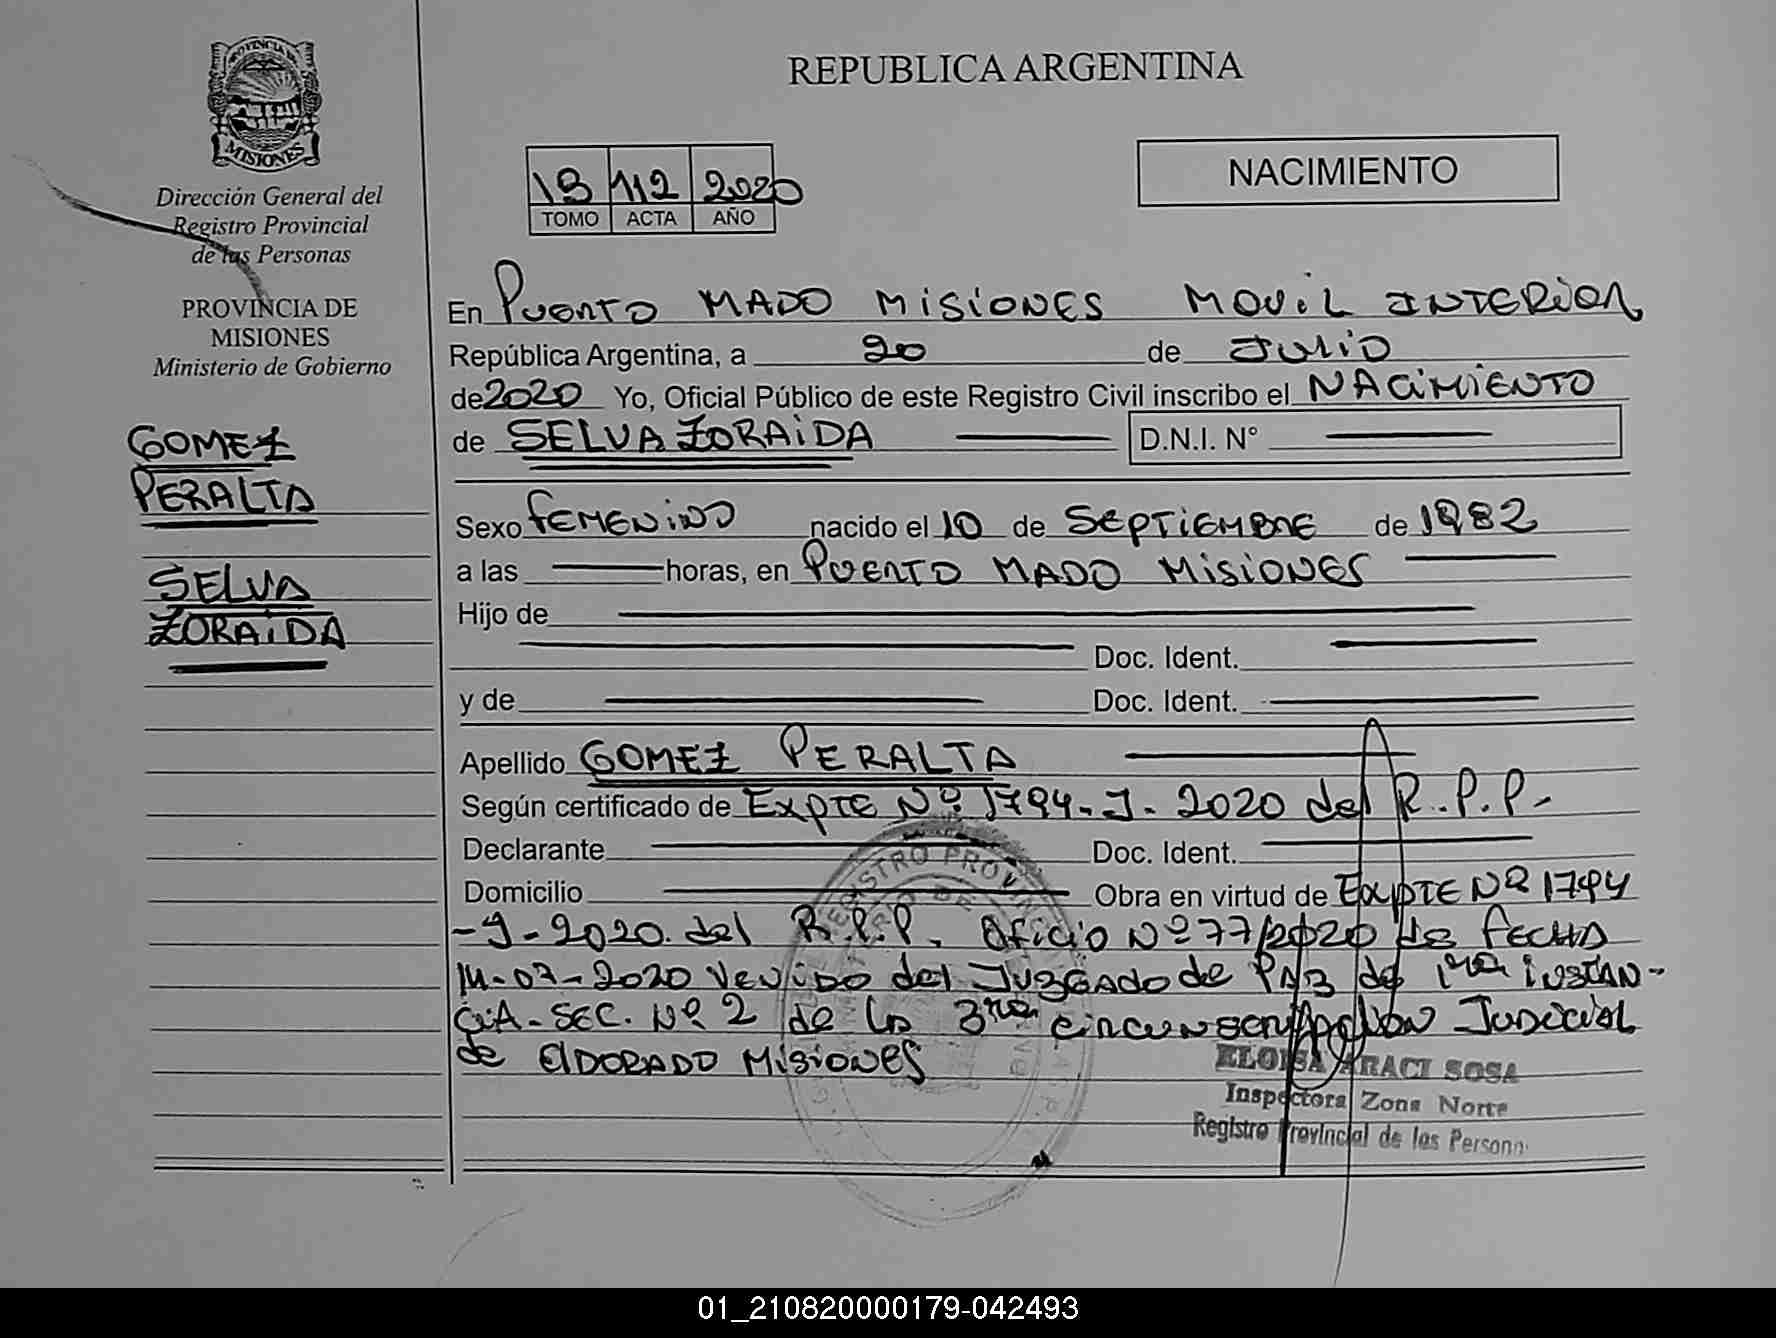 REPUBLICA ARGENTINA
PROVINCIA DE
MISIONES
Dirección General del
Registro Provincial
de las Personas
PROVINCIA DE
MISIONES
Ministerio de Gobierno
GOMEZ
PERALTA
SELVA
ZORAIDA
112 2020
TOMO ACTA AÑO
NACIMIENTO
En PUERTO MADO MISIONES MOVIL INTERIOR
República Argentina, a 20 de JULIO
de 2020 Yo, Oficial Público de este Registro Civil inscribo el NACIMIENTO
de SELVA ZORAIDA D.N.I. N°
Sexo FEMENINO nacido el 10 de SEPTIEMBRE de 1982
a las horas, en PUERTO MADO MISIONES
Hijo de
Doc. Ident.
y de Doc. Ident.
Apellido GOMEZ PERALTA
Según certificado de EXPTE Nº 1794-J-2020 del R.P.P-
Declarante Doc. Ident.
Domicilio Obra en virtud de EXPTE Nº 1794
-J-2020. del R.P.P. Oficio Nº 77/2020 de FECHA
14-07-2020 VENIDO del JUZGADO de PAZ de 1ra INSTAN-
CIA-SEC. Nº 2 de la 3ra CIRCUNSCRIPCION JUDICIAL
de ELDORADO MISIONES
ELOISA ARACI SOSA
Inspectora Zona Norte
Registro Provincial de las Persona
REGISTRO PROVINCIAL
01_210820000179-042493